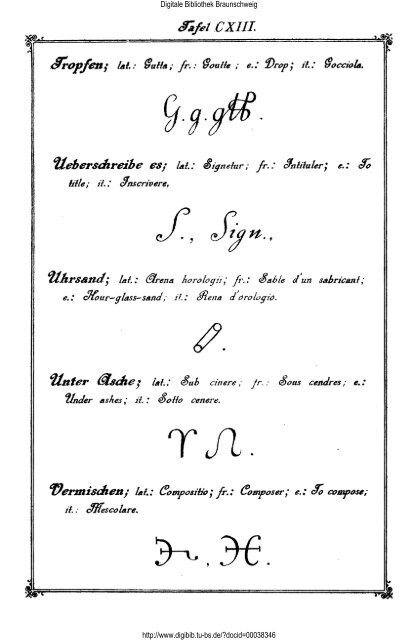 Digitale Bibliothek Braunschweig
Tafel CXIII.
Tropfen; lat.: Gutta; fr.: Goutte; e.: Drop; it.: Gocciola.
G. g. gtt.
Ueberschreibe es; lat.: Signetur; fr.: Intituler; e.: To
title; it.: Inscrivere.
S., Sign.,
Uhrsand; lat.: Arena horologii; fr.: Sable d'un sabricant;
e.: Hour-glass-sand; it.: Rena d'orologio.
Unter Asche; lat.: Sub cinere; fr.: Sous cendres; e.:
Under ashes; it.: Sotto cenere.
Vermischen; lat.: Compositio; fr.: Composer; e.: To compose;
it.: Mescolare.
http://www.digibib.tu-bs.de/?docid=00038346